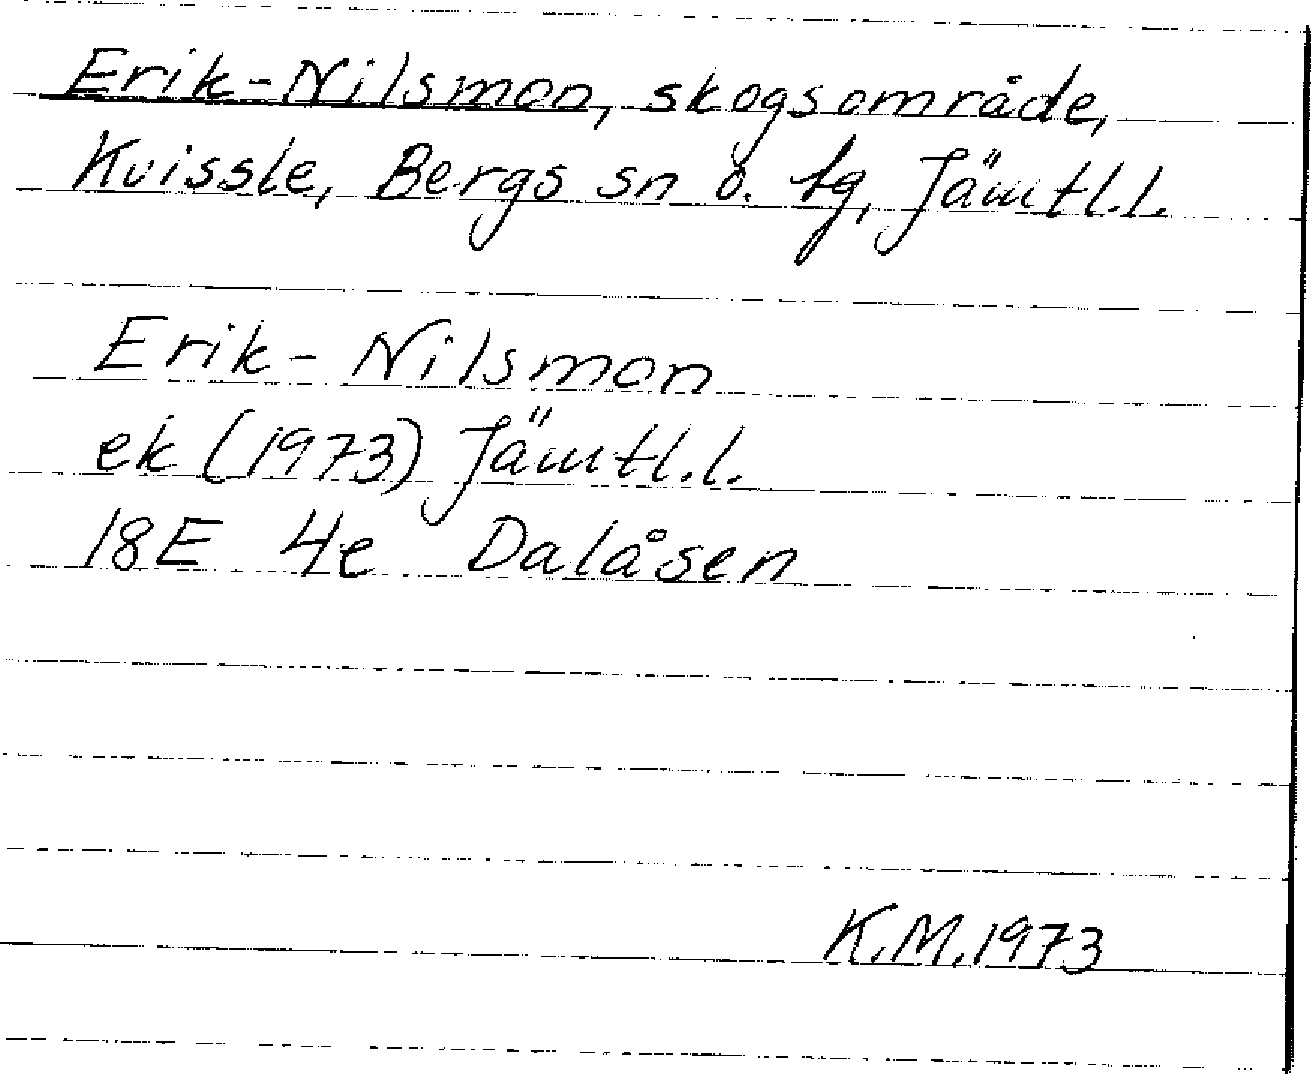 Erik-Nilsmon, skogsområde,
Kvissle, Bergs sn o. tg, Jämtl.l.
Erik-Nilsmon
ek (1973) Jämtl.l.
18E 4e Dalåsen
K.M.1973